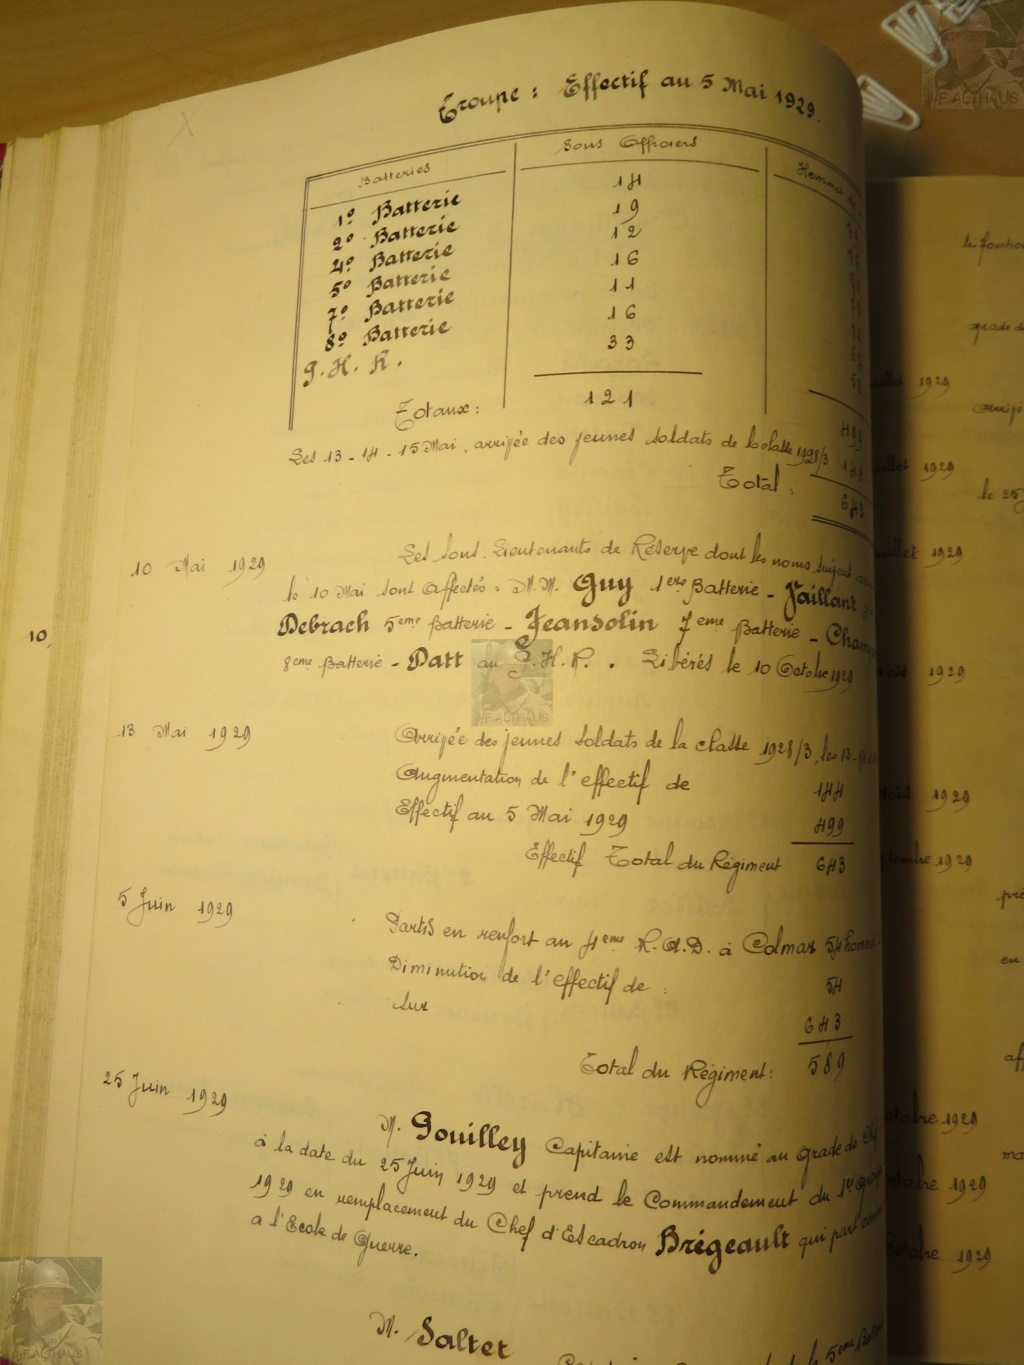 Troupe : Effectif au 5 Mai 1929.
Batteries Sous Officiers Hommes
1º Batterie 14
2º Batterie 19
4º Batterie 12
5º Batterie 16
7º Batterie 11
8º Batterie 16
P. H. R. 33
Totaux : 121 499
Les 13 - 14 - 15 Mai, arrivée des jeunes soldats de la classe 1928/3 144
Total : 643
10 Mai 1929 Les Sous. Lieutenants de Réserve dont les noms suivent
le 10 Mai sont affectés : M.M. Guy 1ère Batterie - Vaillant
10 Debrach 5eme Batterie - Jeansolin 7eme Batterie -
8eme Batterie - Datt au P.H.R. . Libérés le 10 Octobre 1929
13 Mai 1929 Arrivée des jeunes soldats de la classe 1928/3, les 13 -
Augmentation de l'effectif de 144
Effectif au 5 Mai 1929 499
Effectif Total du Régiment 643
5 Juin 1929 Partis en renfort au 4eme R.A.D. à Colmar 54 hommes
Diminution de l'effectif de : 54
sur 643
Total du Régiment : 589
25 Juin 1929
M. Gouilley Capitaine est nommé au grade de
à la date du 25 Juin 1929 et prend le Commandement du 1er
1929 en remplacement du Chef d'Escadron Brégeault qui part
à l'Ecole de Guerre.
M. Saltet
5eme
le
grade de
1929
1929
le 25
juillet 1929
1929
1929
septembre 1929
en
octobre 1929
octobre 1929
octobre 1929
J-F ALTHAUS
J-F ALTHAUS
J-F ALTHAUS